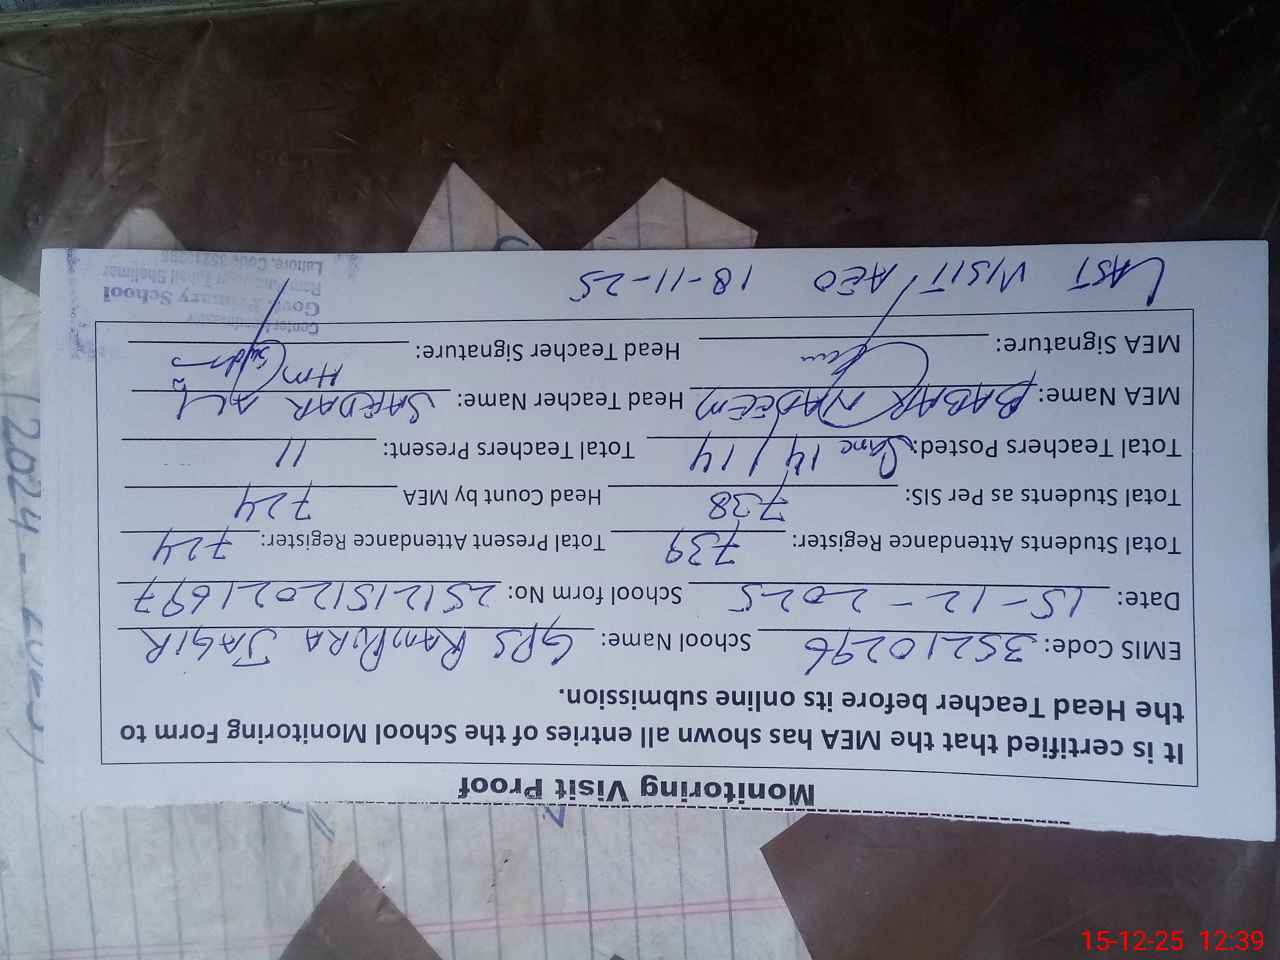 Monitoring Visit Proof
It is certified that the MEA has shown all entries of the School Monitoring Form to
the Head Teacher before its online submission.
EMIS Code: 35210296 School Name: GPS RAMPURA JAGIR
Date: 15-12-2025 School form No: 25121512021697
Total Students Attendance Register: 739 Total Present Attendance Register: 724
Total Students as Per SIS: 738 Head Count by MEA 724
Total Teachers Posted: Sanc 14/14 Total Teachers Present: 11
MEA Name: BABAR NADEEM Head Teacher Name: SARDAR ALI
MEA Signature: Head Teacher Signature: HM
LAST VISIT AEO 18-11-25
Govt. Primary School
Lahore. Code 35210296
2024
15-12-25 12:39